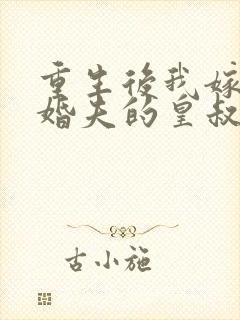 重生後我嫁
婚夫的皇叔
古小施